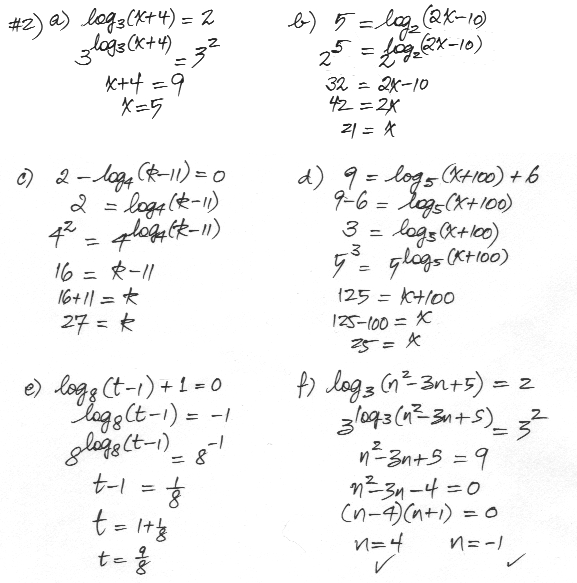 #2) a) log₃(x+4) = 2
3^log₃(x+4) = 3²
x+4 = 9
x=5
b) 5 = log₂(2x-10)
2⁵ = 2^log₂(2x-10)
32 = 2x-10
42 = 2x
21 = x
c) 2 - log₄(k-11) = 0
2 = log₄(k-11)
4² = 4^log₄(k-11)
16 = k-11
16+11 = k
27 = k
d) 9 = log₅(x+100) + 6
9-6 = log₅(x+100)
3 = log₅(x+100)
5³ = 5^log₅(x+100)
125 = x+100
125-100 = x
25 = x
e) log₈(t-1) + 1 = 0
log₈(t-1) = -1
8^log₈(t-1) = 8⁻¹
t-1 = 1/8
t = 1+1/8
t = 9/8
f) log₃(n²-3n+5) = 2
3^log₃(n²-3n+5) = 3²
n²-3n+5 = 9
n²-3n-4 = 0
(n-4)(n+1) = 0
n=4 n=-1
✓ ✓